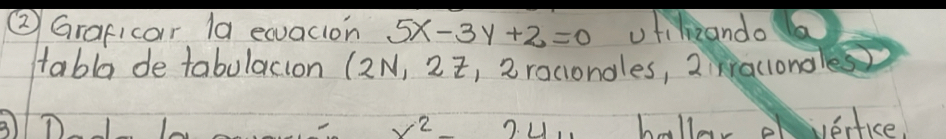 ② Graficar la ecuación 5x-3y+2=0 utilizando la
tabla de tabulacion (2N, 2Z, 2 racionales, 2 irracionales)
3) Dada la x² 2y hallar el vértice